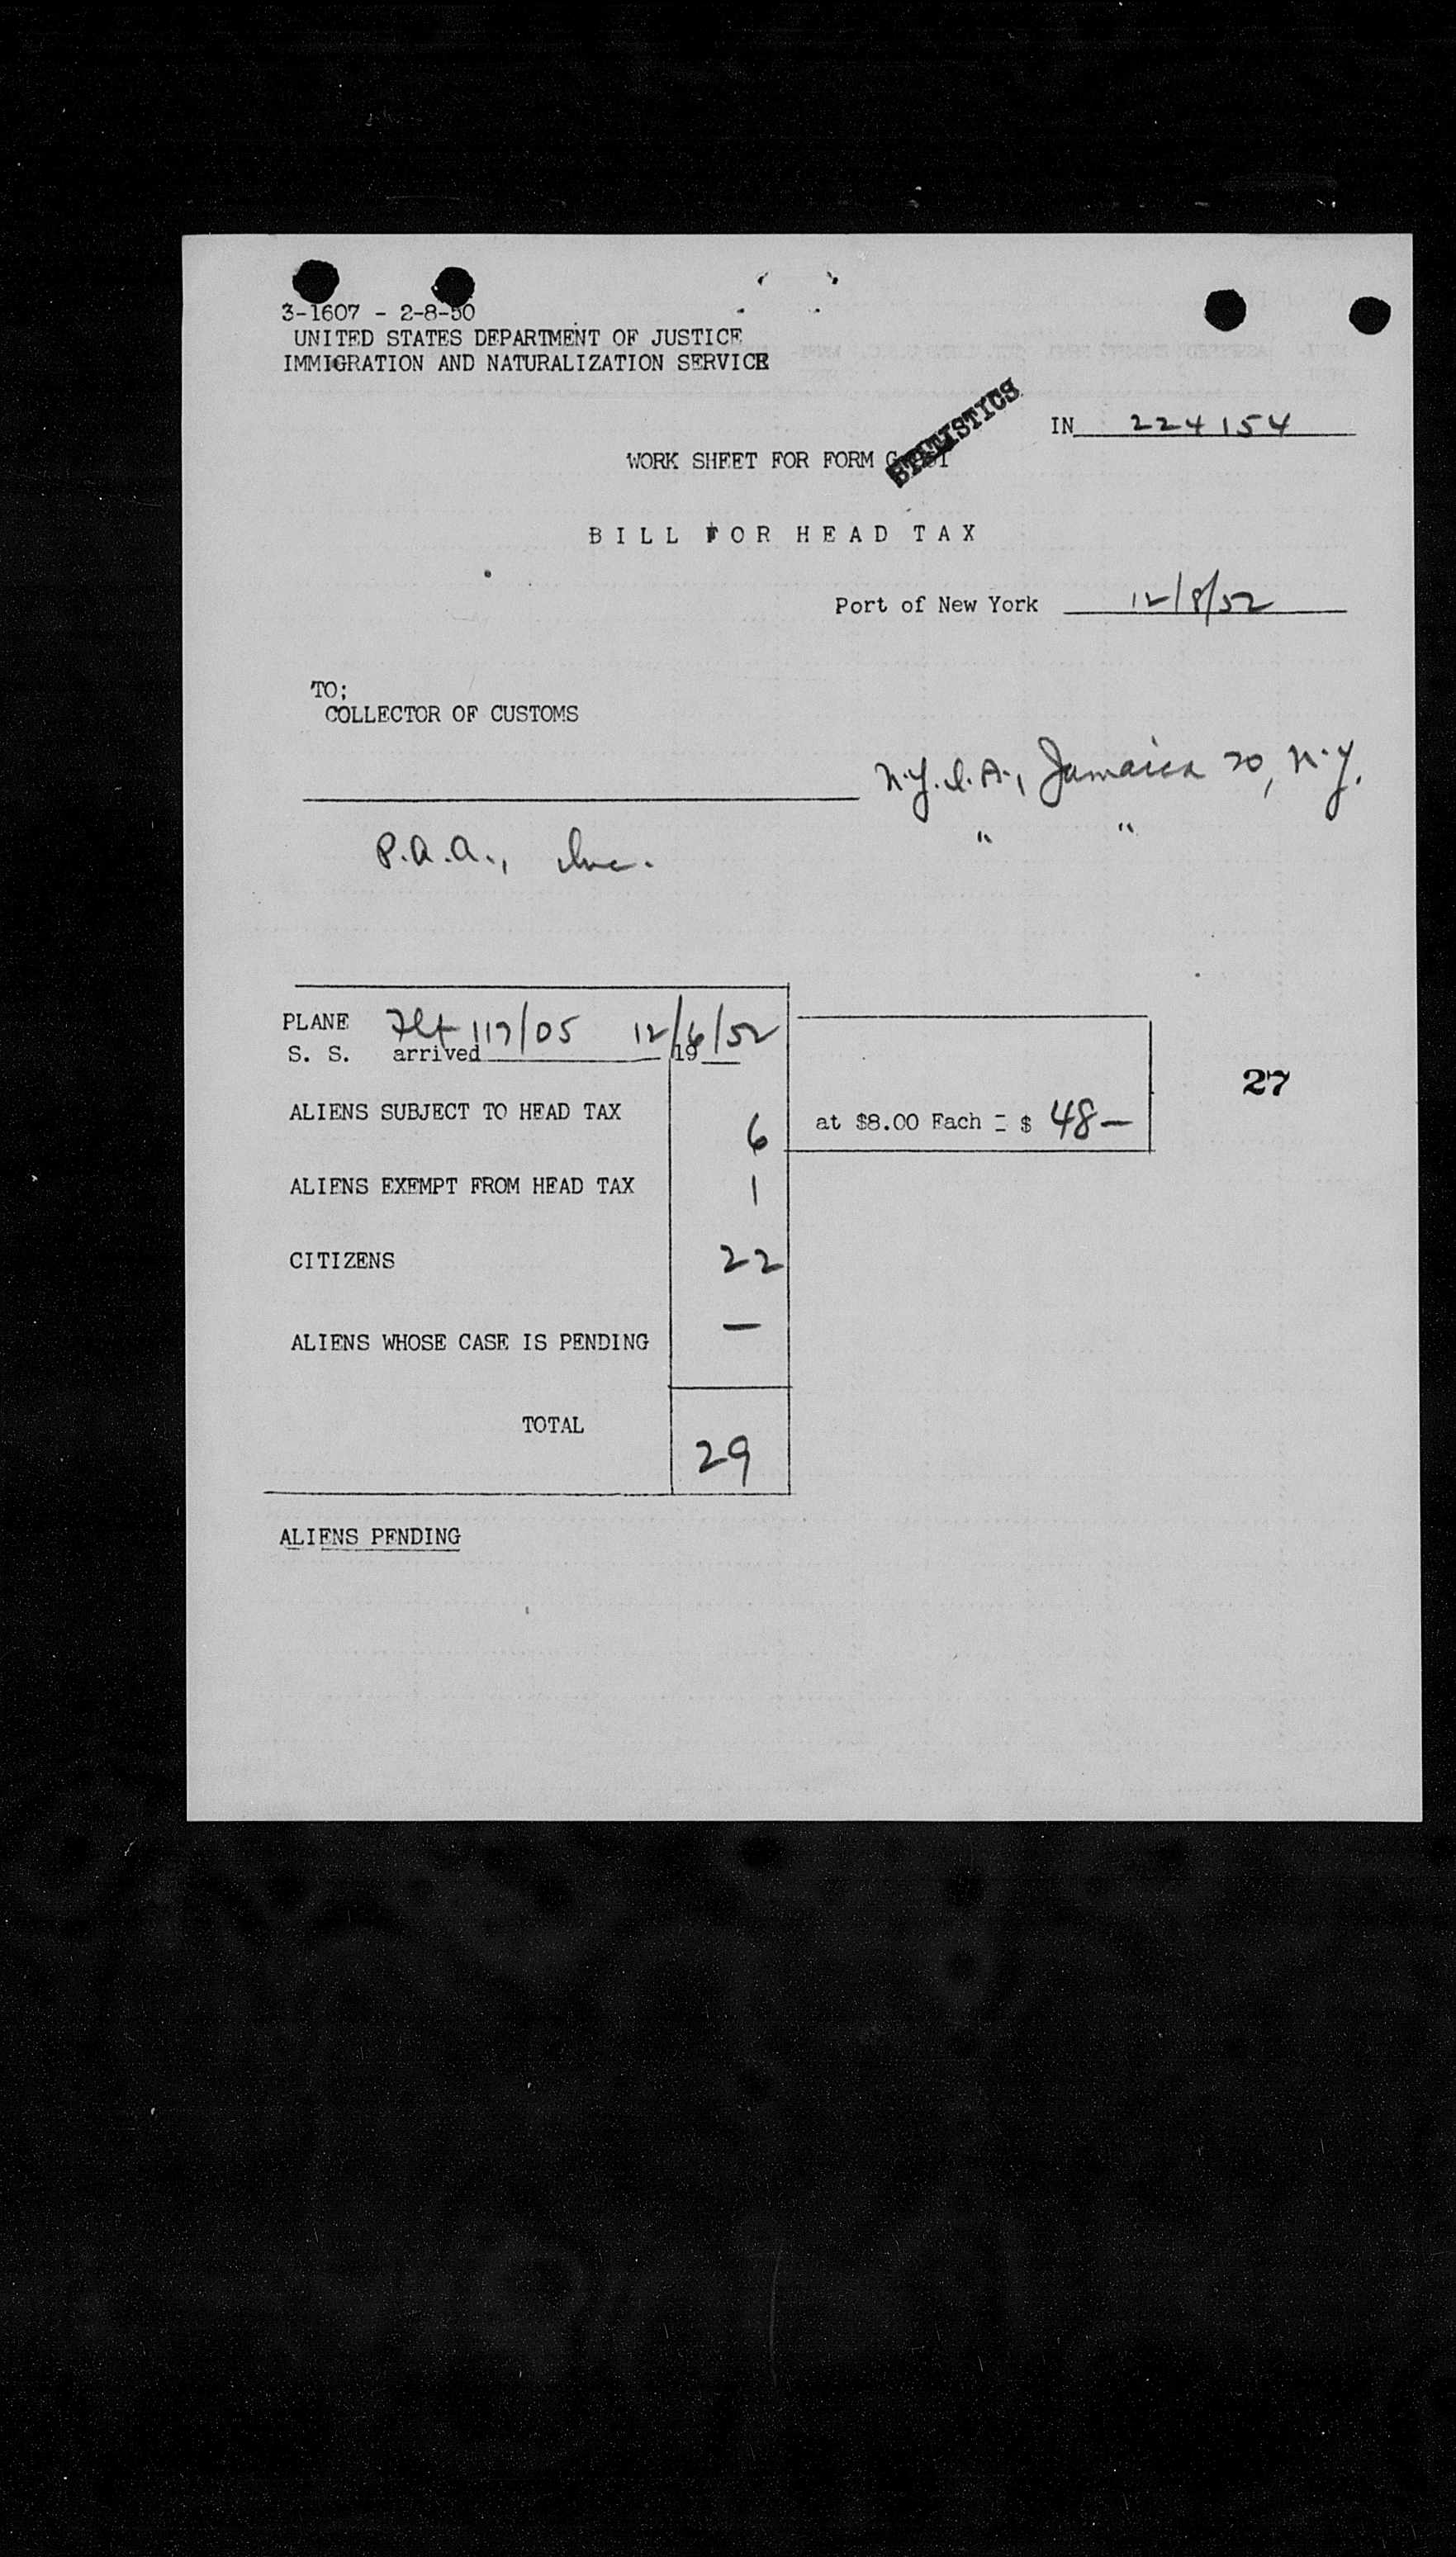 3-1607 - 2-8-50
UNITED STATES DEPARTMENT OF JUSTICE
IMMIGRATION AND NATURALIZATION SERVICE
STATISTICS
IN 224154
WORK SHEET FOR FORM
BILL FOR HEAD TAX
Port of New York 12/8/52
TO:
COLLECTOR OF CUSTOMS
N.Y.I.A., Jamaica 20, N.Y.
P.A.A., Inc. " "
PLANE Flt 117/05 12/6/52
S. S. arrived 19
27
ALIENS SUBJECT TO HEAD TAX 6 at $8.00 Each = $ 48—
ALIENS EXEMPT FROM HEAD TAX 1
CITIZENS 22
ALIENS WHOSE CASE IS PENDING —
TOTAL 29
ALIENS PENDING